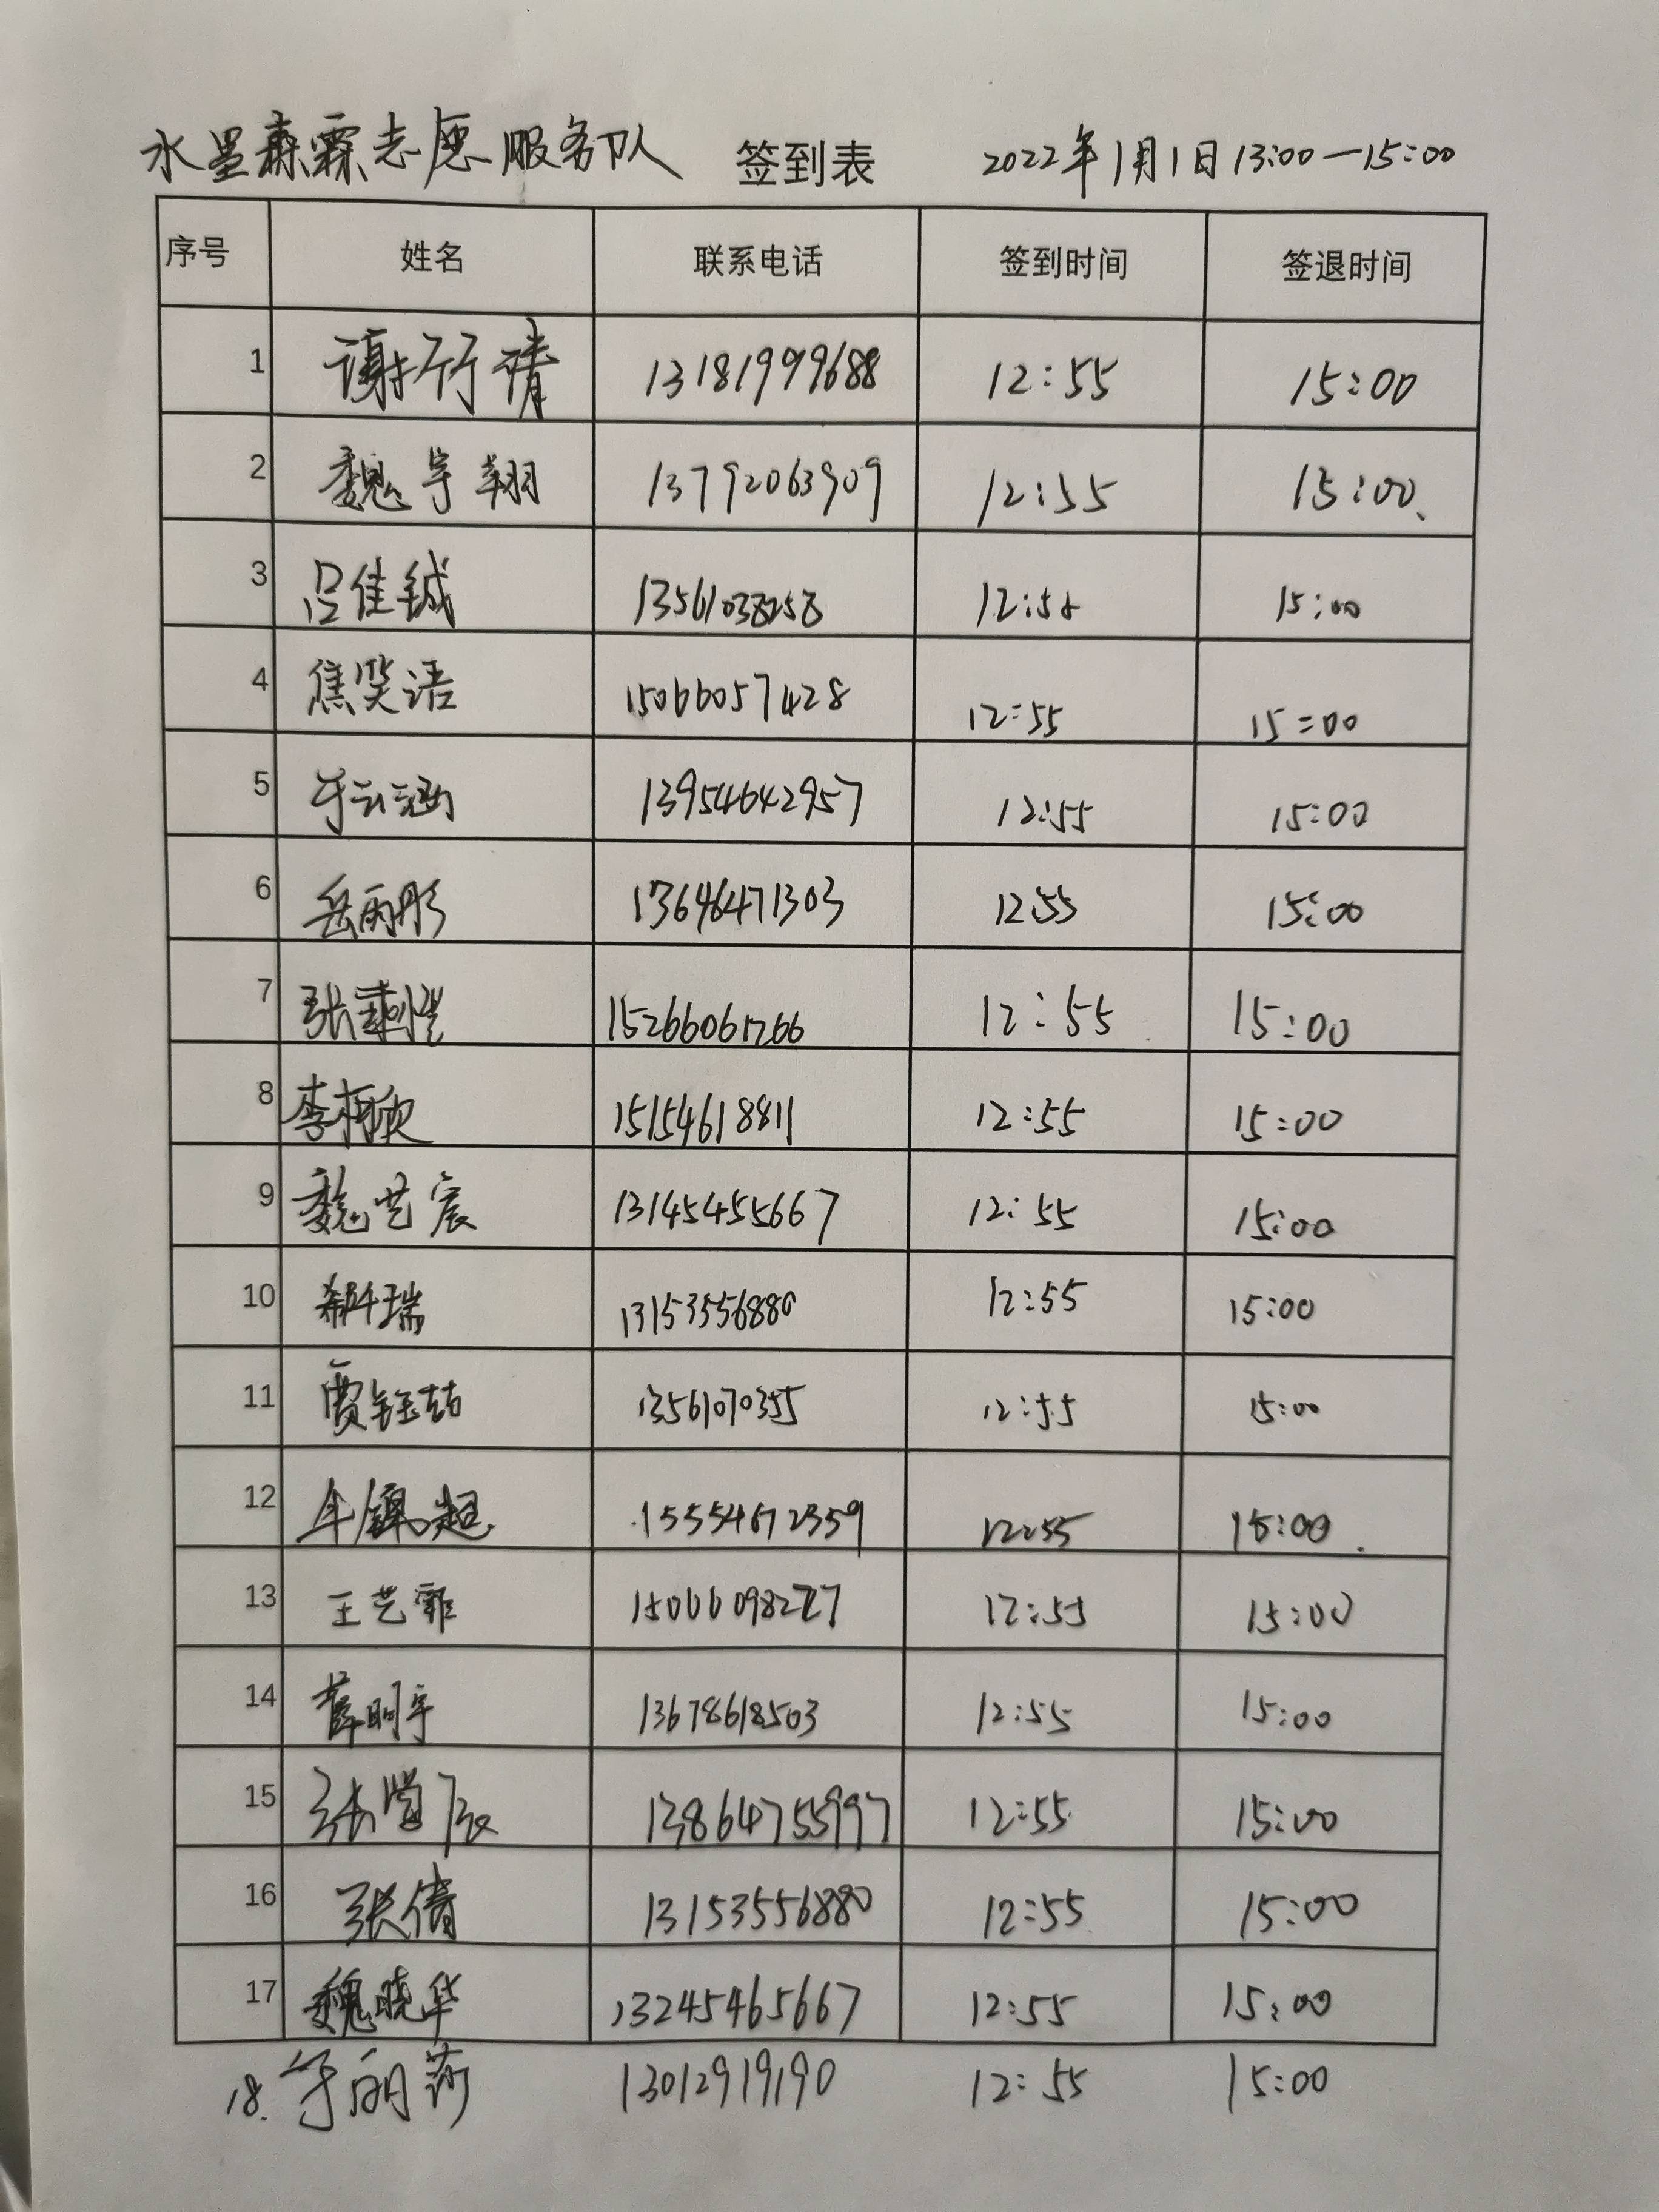 水星森霖志愿服务队 签到表 2022年1月1日13:00—15:00
序号 姓名 联系电话 签到时间 签退时间
1 谢竹清 13181999688 12:55 15:00
2 魏宇翔 13792063909 12:55 15:00、
3 吕佳铖 13561038258 12:55 15:00
4 焦笑语 15066057428 12:55 15:00
5 于云涵 13954642957 12:55 15:00
6 岳雨彤 13646471303 12:55 15:00
7 张 15266061766 12:55 15:00
8 李柯欣 15154618811 12:55 15:00
9 魏艺宸 13145455667 12:55 15:00
10 郝千瑞 13153556880 12:55 15:00
11 贾钰喆 13561070355 12:55 15:00
12 牟锦超 15554672359 12:55 15:00
13 王艺霏 15066098227 12:55 15:00
14 薛明宇 13678618503 12:55 15:00
15 张 13864755997 12:55 15:00
16 张倩 13153556880 12:55 15:00
17 魏晓华 13245465667 12:55 15:00
18. 于丽莎 13012919190 12:55 15:00